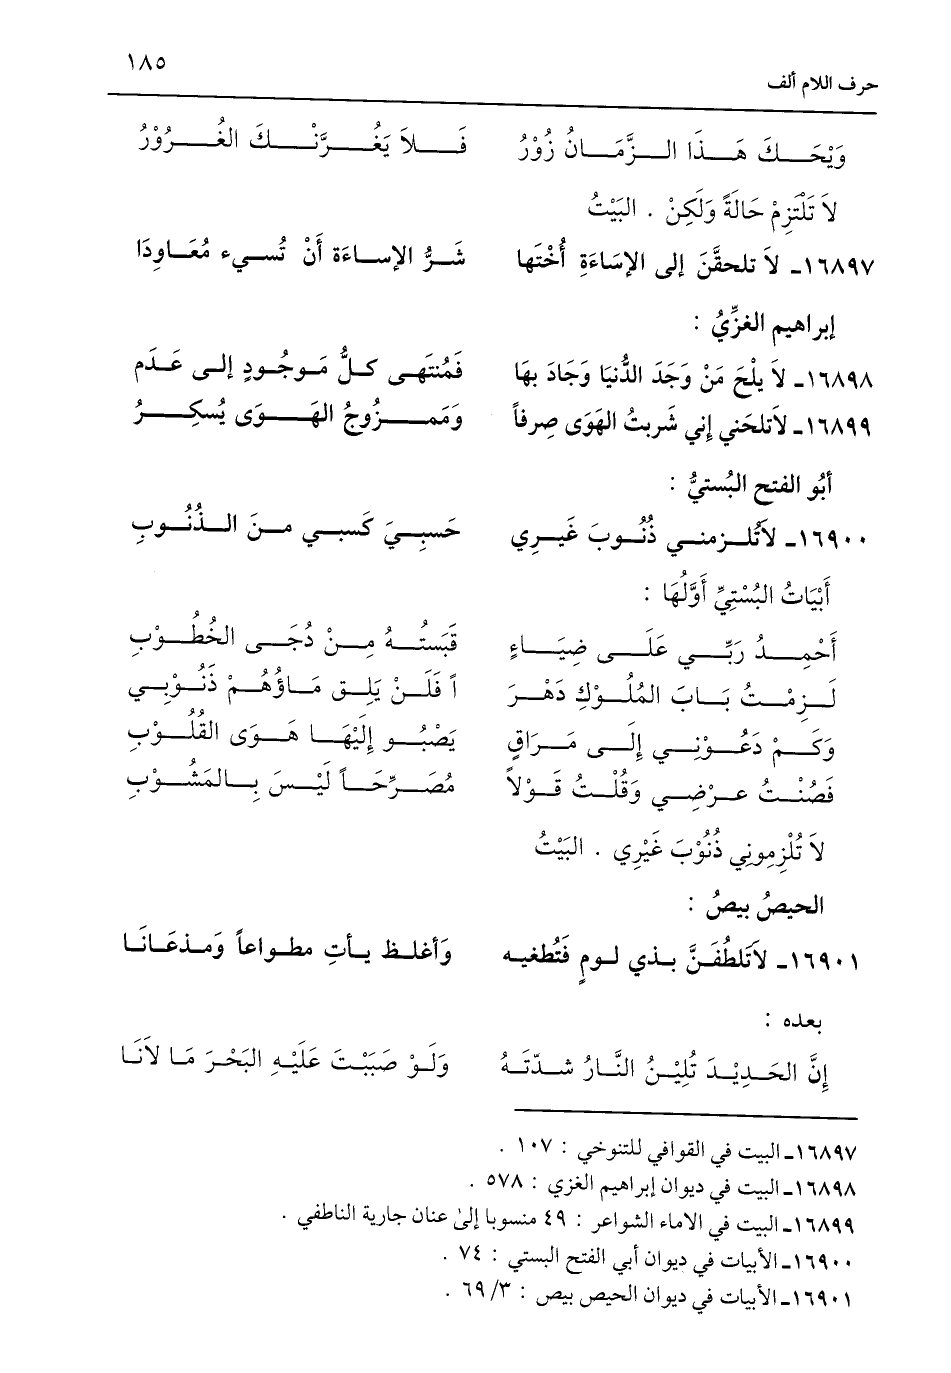 ١٨٥
حرف اللام ألف
وَيْحَكَ هَذَا الزَّمَانُ زُوْرُ فَلاَ يَغُرَّنْكَ الغُرُوْرُ
لاَ تَلْتَزِمْ حَالَةً وَلَكِنْ . البَيْتُ
١٦٨٩٧ـ لاَ تلحقَّنَ إلى الإسَاءَةِ أُخْتَها شَرُّ الإساءَة أَنْ تُسيء مُعَاوِدَا
إبراهيم الغزِّيُ :
١٦٨٩٨ـ لاَ يلْحَ مَنْ وَجَدَ الدُّنيَا وَجَادَ بهَا فَمُنتَهى كلُّ مَوجُودٍ إلى عَدَم
١٦٨٩٩ـ لاَتلحَني إني شَربتُ الهَوَى صِرفاً وَمَمزُوجُ الهَوَى يُسكِرُ
أبُو الفتح البُستيُّ :
١٦٩٠٠ـ لاَتُلزمني ذُنُوبَ غَيرِي حَسبِيَ كَسبي منَ الذُنُوبِ
أَبْيَاتُ البُسْتِيِّ أَوَّلُهَا :
أَحْمِدُ رَبِّي عَلَى ضِيَاءٍ قَبَستُهُ مِنْ دُجَى الخُطُوْبِ
لَزِمْتُ بَابَ المُلُوْكِ دَهْرَ اً فَلَنْ يَلِق مَاؤُهُمْ ذَنُوْبِي
وَكَمْ دَعُوْنِي إِلَى مَرَاقٍ يَصْبُو إِلَيْهَا هَوَى القُلُوْبِ
فَصُنْتُ عرْضِي وَقُلْتُ قَوْلاً مُصَرِّحَاً لَيْسَ بِالمَشُوْبِ
لاَ تُلْزِمِوني ذُنُوْبَ غَيْرِي . البَيْتُ
الحيصُ بيصُ :
١٦٩٠١ـ لاَتَلطُفَنَّ بذي لومٍ فَتُطغيه وَأغلظ يأتِ مطواعاً وَمذعَانَا
بعده :
إِنَّ الحَدِيْدَ تُلِيْنُ النَّارُ شدّتَهُ وَلَوْ صَبَبْتَ عَلَيْهِ البَحْرَ مَا لاَنَا
١٦٨٩٧ـ البيت في القوافي للتنوخي : ١٠٧ .
١٦٨٩٨ـ البيت في ديوان إبراهيم الغزي : ٥٧٨ .
١٦٨٩٩ـ البيت في الاماء الشواعر : ٤٩ منسوبا إلىٰ عنان جارية الناطفي .
١٦٩٠٠ـ الأبيات في ديوان أبي الفتح البستي : ٧٤ .
١٦٩٠١ـ الأبيات في ديوان الحيص بيص : ٣/ ٦٩ .